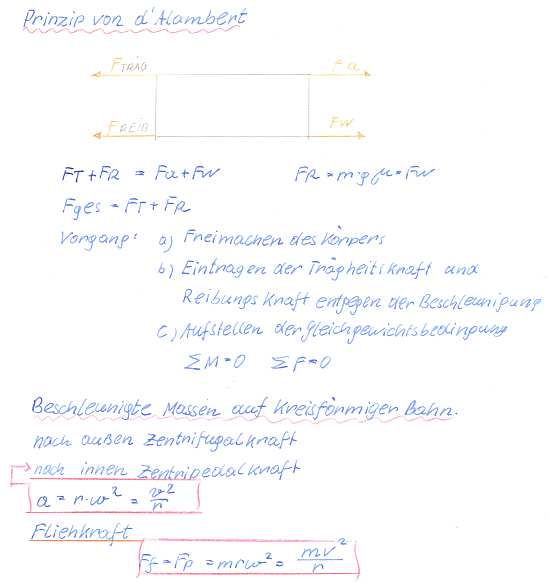 Prinzip von d'Alambert
FTRÄG Fa
FREIB FW
FT + FR = Fa + FW FR = m·g·μ = FW
Fges = FT + FR
Vorgang: a) Freimachen des Körpers
b) Eintragen der Trägheitskraft und
Reibungskraft entgegen der Beschleunigung
c) Aufstellen der Gleichgewichtsbedingung
ΣM=0 ΣF=0
Beschleunigte Massen auf kreisförmiger Bahn.
nach außen Zentrifugalkraft
nach innen Zentripedalkraft
a = r·ω² = v²/r
Fliehkraft
Ff = Fp = mrω² = mv²/r